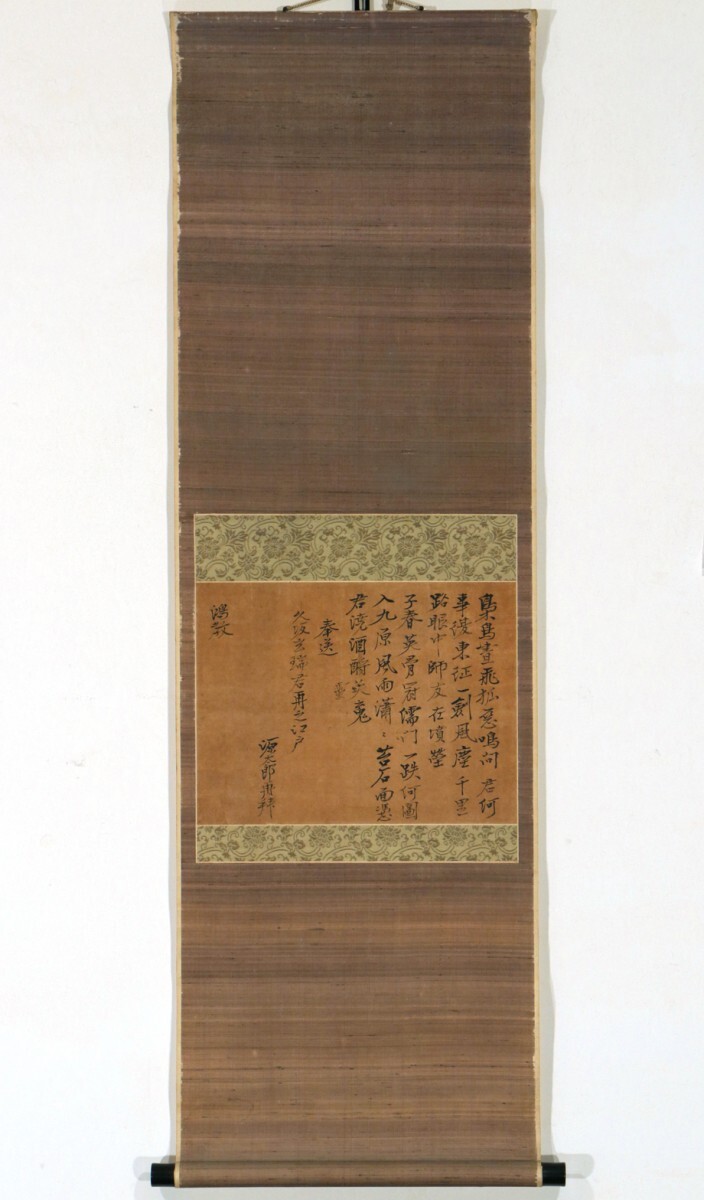 梟鳥晝飛狐惡鳴問君何
事復東征一劍風塵千里
路眼中師友在墳塋
子春英骨冠儒門一跌何圖
入九原風雨瀟〻苔石面憑
君澆酒酹英魂
奉送
久坂玄瑞君再之江戸
源太郎拜